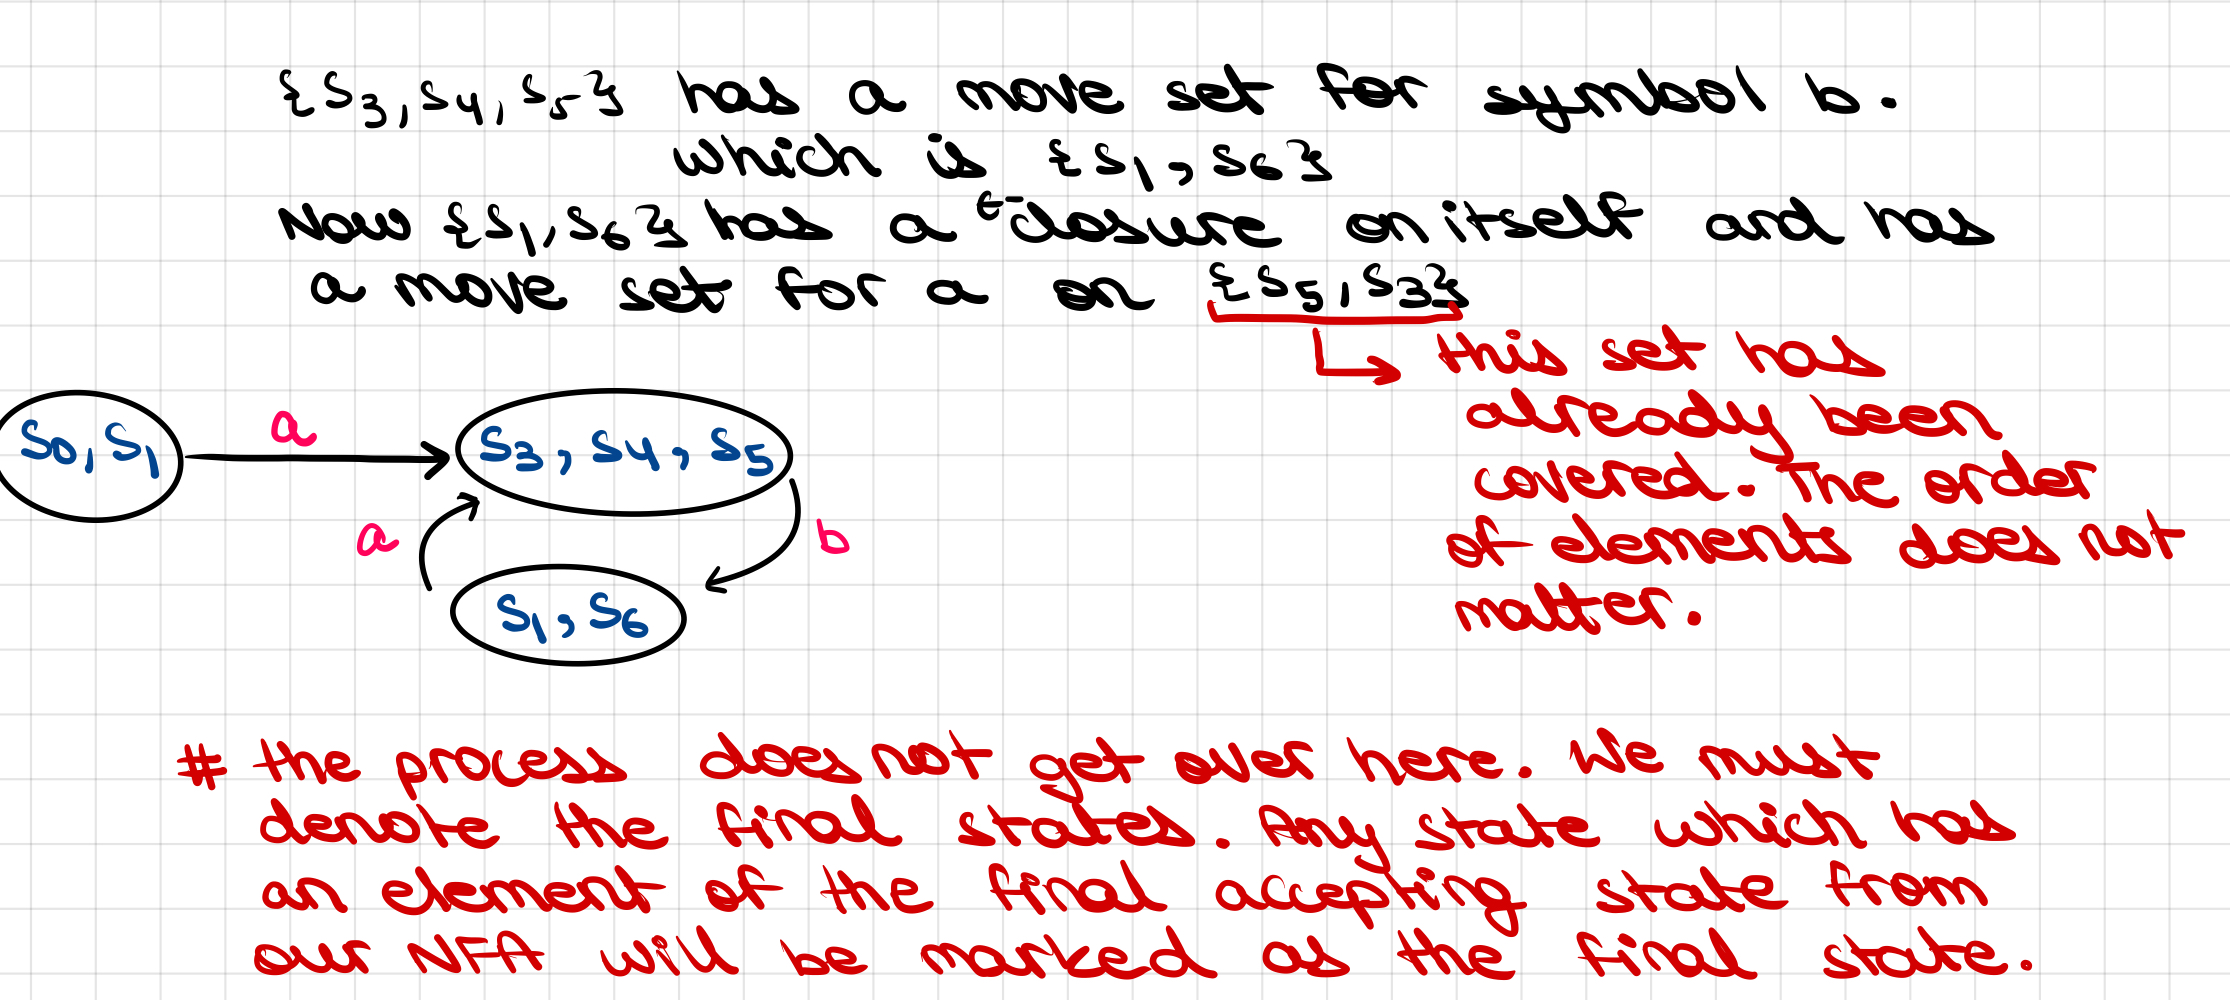 {S3, S4, S5} has a move set for symbol b.
which is {S1, S6}
Now {S1, S6} has a ε-closure on itself and has
a move set for a on {S5, S3}
this set has
already been
covered. The order
of elements does not
matter.
S0, S1
a
S3, S4, S5
a
b
S1, S6
# the process does not get over here. We must
denote the final states. Any state which has
an element of the final accepting state from
our NFA will be marked as the final state.